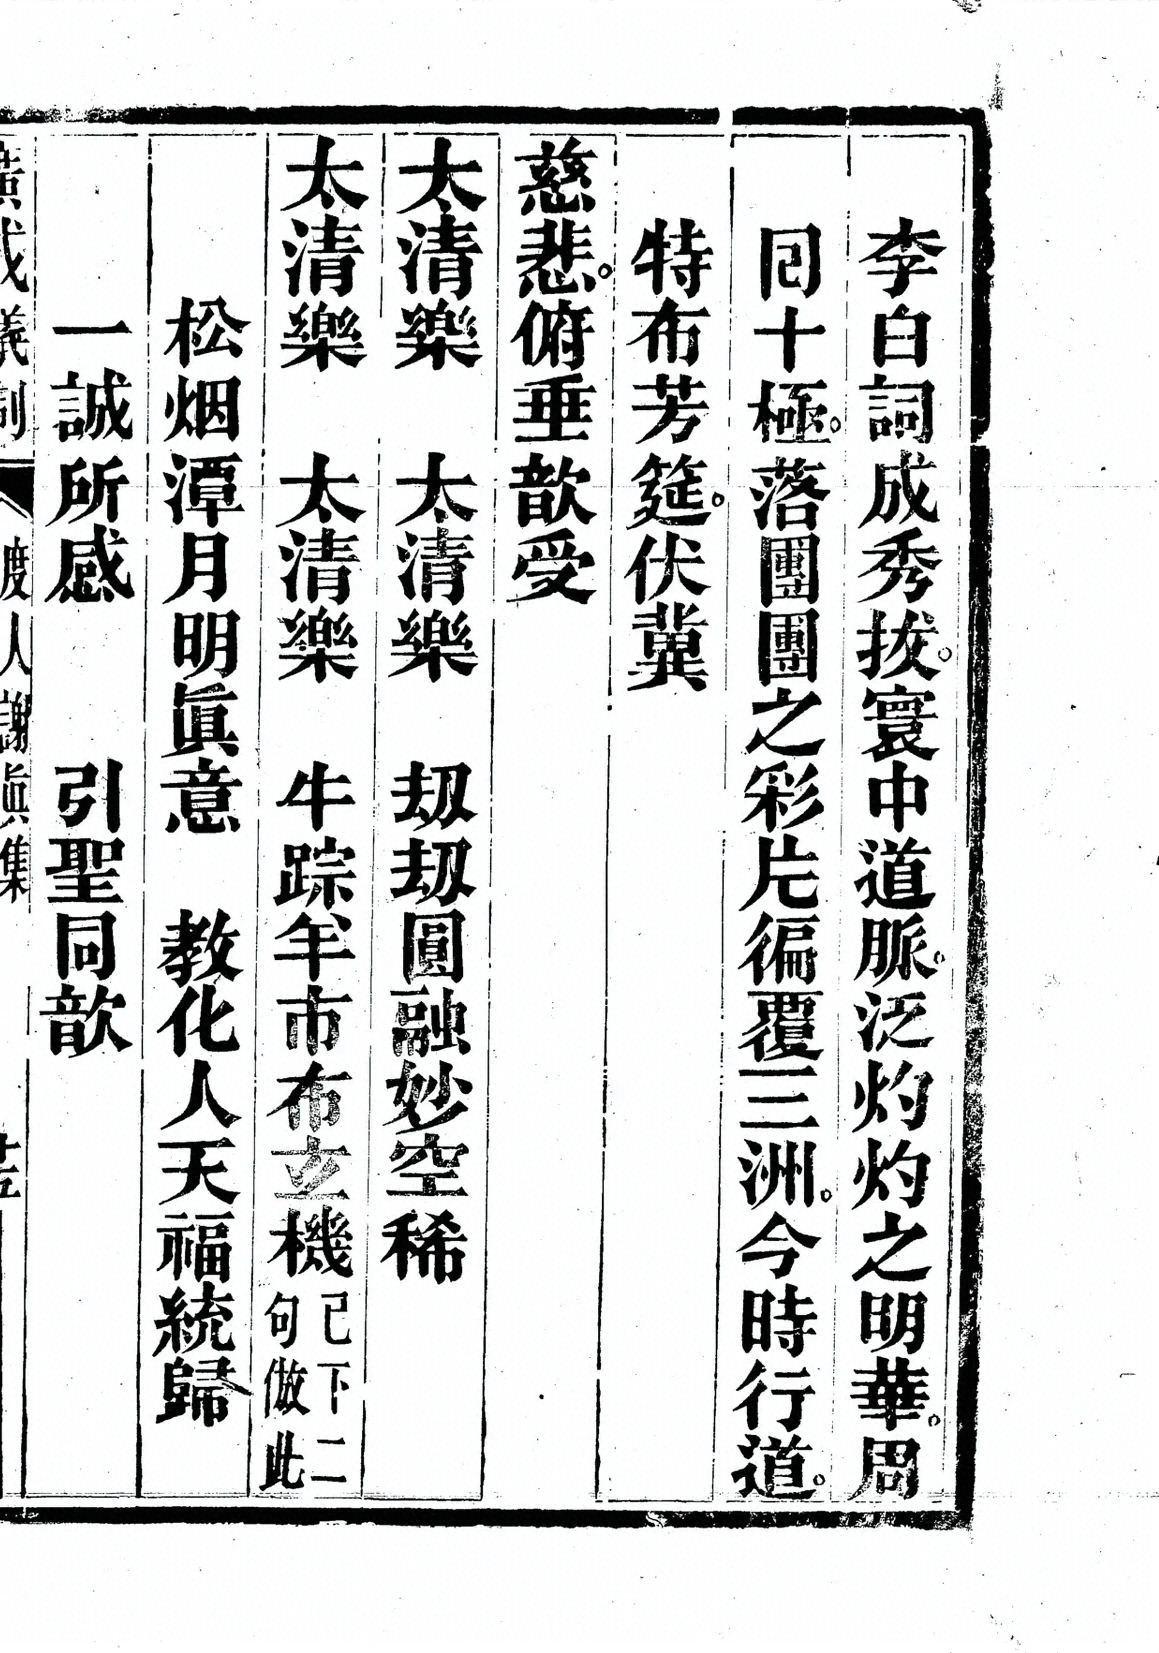 李白詞成秀拔。寰中道脈。泛灼灼之明華。周
囘十極。落團團之彩片徧覆三洲。今時行道。
特布芳筵。伏冀
慈悲。俯垂歆受
太清樂　太清樂　刼刼圓融妙空稀
太清樂　太清樂　牛踪羊市布玄機已下二句倣此
松烟潭月明眞意　教化人天福統歸
一誠所感　引聖同歆
廣成儀制　度人謝眞集